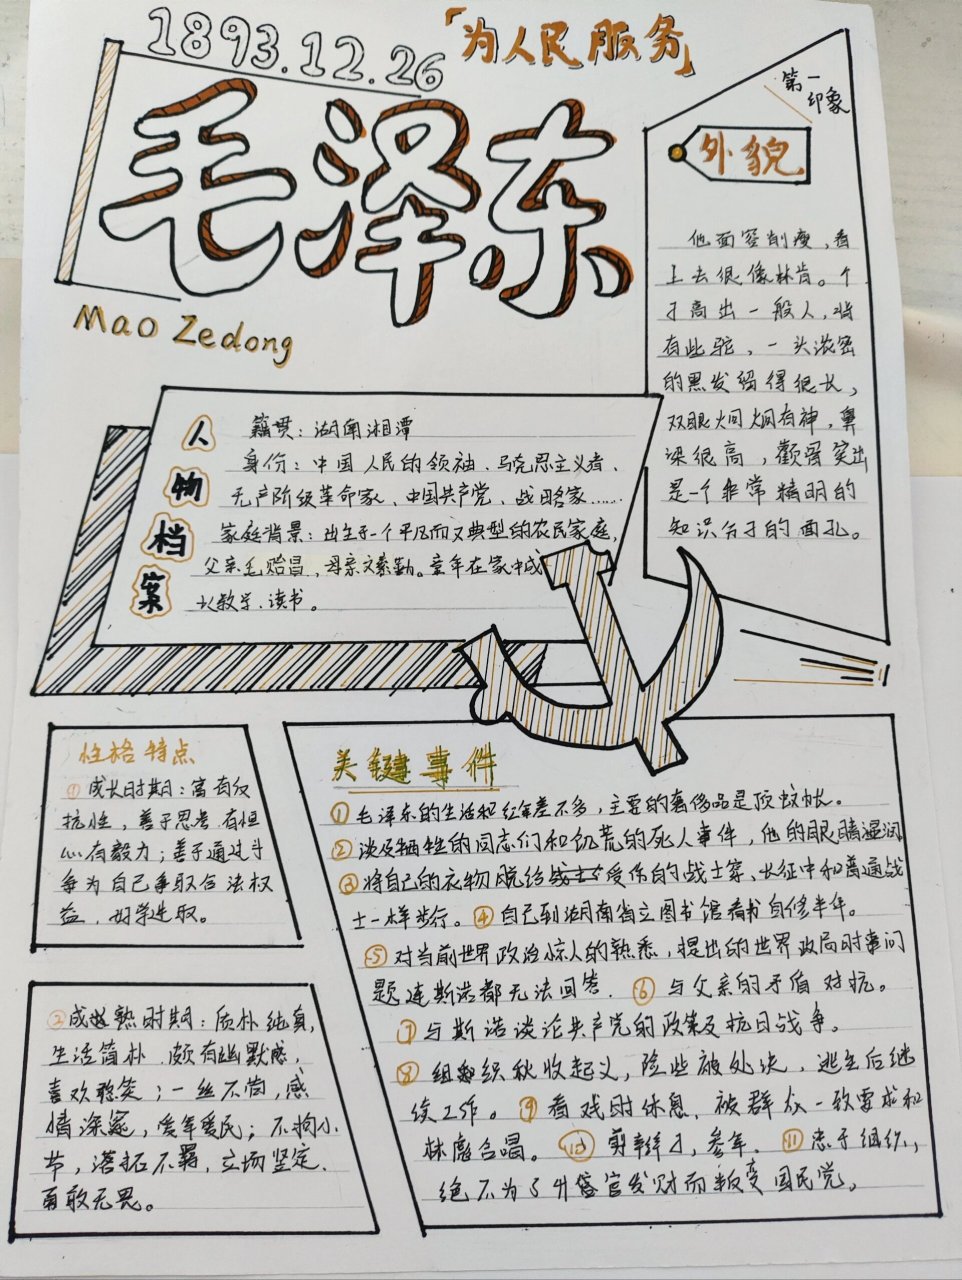 1893.12.26
「为人民服务」
毛泽东
Mao Zedong
第一
印象
外貌
他面容削瘦，看
上去很像林肯。个
子高出一般人，背
有些驼，一头浓密
的黑发留得很长，
双眼炯炯有神，鼻
梁很高，颧骨突出
是一个非常精明的
知识分子的面孔。
人物档案
籍贯：湖南湘潭
身份：中国人民的领袖、马克思主义者、
无产阶级革命家、中国共产党、战略家……
家庭背景：出生于一个平凡而又典型的农民家庭，
父亲毛贻昌，母亲文素勤。童年在家中成
长教学、读书。
性格特点
①成长时期：富有反
抗性，善于思考，有恒
心有毅力；善于通过斗
争为自己争取合法权
益、好学进取。
②成熟时期：质朴纯真，
生活简朴、颇有幽默感，
喜欢憨笑；一丝不苟，感
情深邃，爱年爱民；不拘小
节，落拓不羁，立场坚定、
勇敢无畏。
关键事件
①毛泽东的生活和红军差不多，主要的奢侈品是顶蚊帐。
②谈及牺牲的同志们和饥荒的死人事件，他的眼睛湿润
③将自己的衣物脱给受伤的战士穿、长征中和普通战
士一样步行。④自己到湖南省立图书馆看书自修半年。
⑤对当前世界政治惊人的熟悉，提出的世界政局时事问
题连斯诺都无法回答．⑥与父亲的矛盾对抗。
⑦与斯诺谈论共产党的政策及抗日战争。
⑧组织秋收起义，险些被处决，逃生后继
续工作。⑨看戏时休息，被群众一致要求和
林彪合唱。⑩剪辫子，参军．⑪忠于组织，
绝不为了升官发财而叛变国民党。